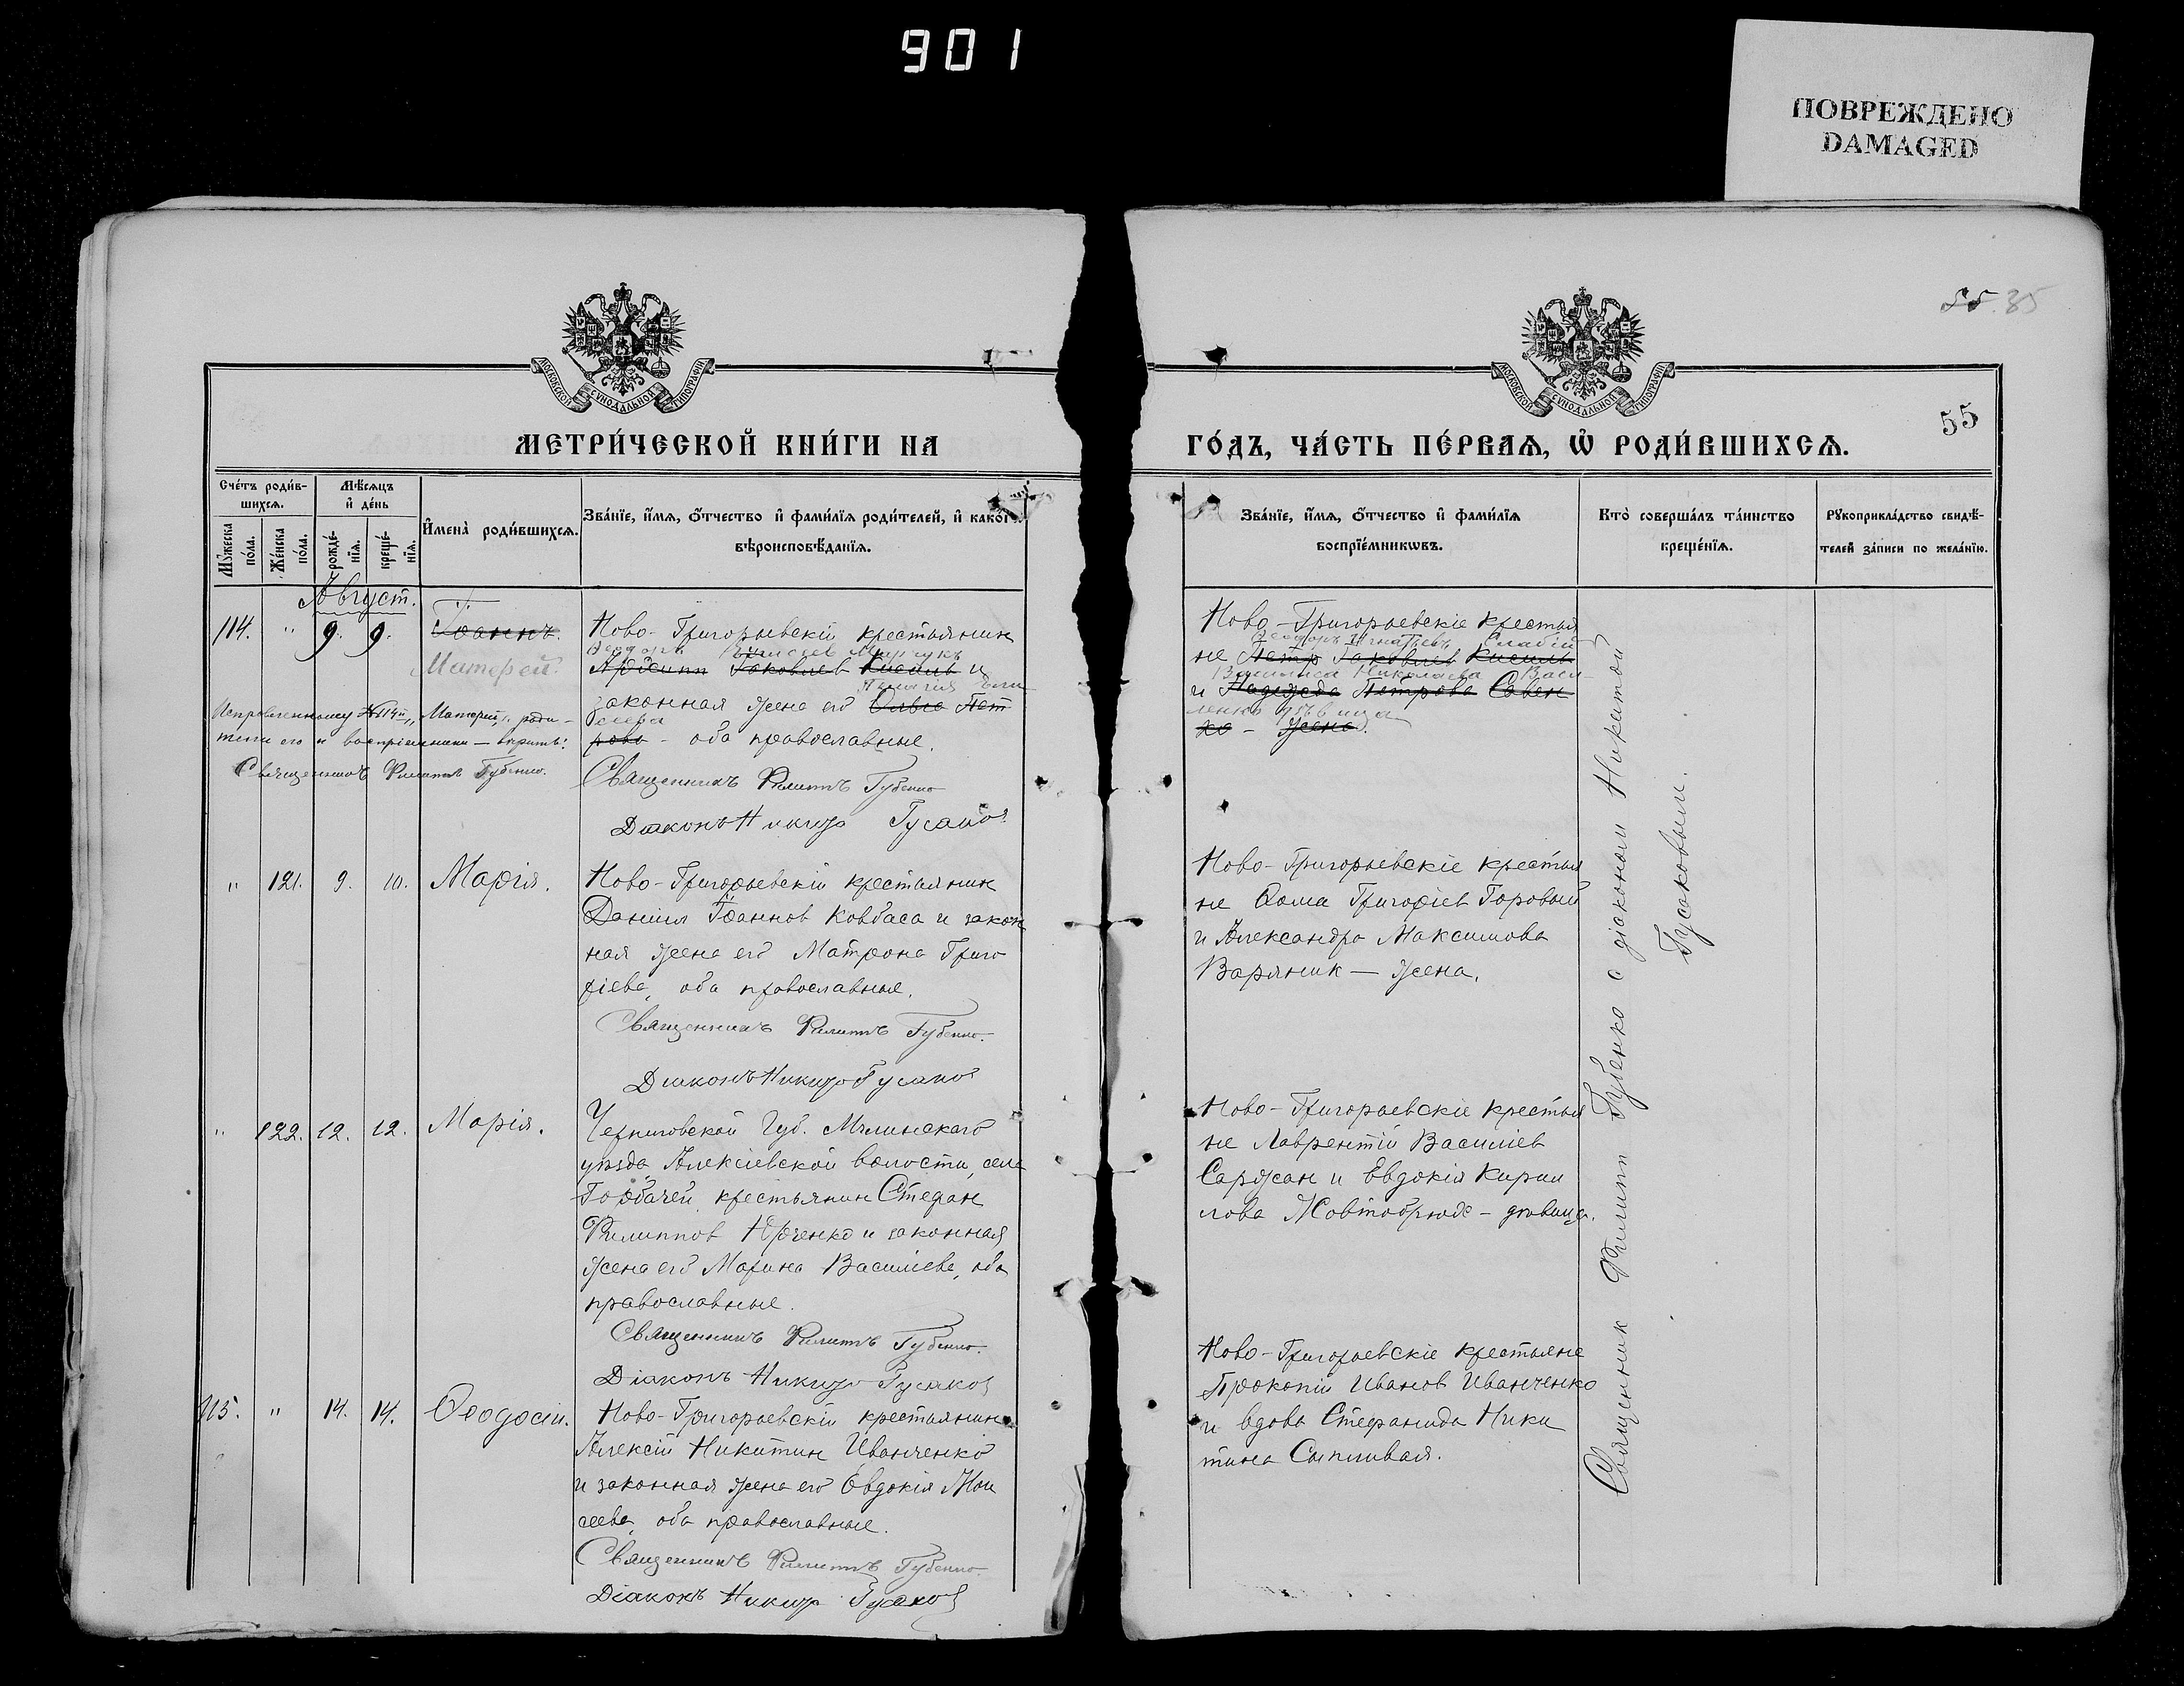 901
ПОВРЕЖДЕНО
DAMAGED
55. 35
МОСКОВСКОЙ СУНОДАЛЬНОЙ ТИПОГРАФІИ
МОСКОВСКОЙ СУНОДАЛЬНОЙ ТИПОГРАФІИ
55
МЕТРИ́ЧЕСКОЙ КНИ́ГИ НА
ГО́ДЪ, ЧА́СТЬ ПЕ́РВАѦ, Ѡ҆ РОДИ́ВШИХСѦ.
Сче́тъ роди́в-
шихсѧ.
Мꙋжеска по́ла.
Же́нска по́ла.
Мѣ́сѧцъ
и҆ де́нь
рожде́-
нїѧ.
креще́-
нїѧ.
И҆мена̀ роди́вшихсѧ.
Зва́нїе, и҆́мѧ, ѻ҆́тчество и҆ фами́лїѧ роди́телей, и҆ како́гѡ
вѣроисповѣ́данїѧ.
Зва́нїе, и҆́мѧ, ѻ҆́тчество и҆ фами́лїѧ
воспрїе́мникѡвъ.
Кто̀ соверша́лъ та́инство
креще́нїѧ.
Рꙋкоприкла́дство свидѣ́-
телей за́писи по жела́нїю.
Август.
114. " 9. 9. Іоаннъ.
Матфей.
Исправленному №114й "Матфей", роди-
тели его и воспріемники — вѣрить:
Священникъ Филиппъ Губенко.
Ново-Григорьевскій крестьянин
Феодоръ
Іаковлев Кисиль и
законная жена его Ольга Пет
рова - оба православные.
Священникъ Филиппъ Губенко
Діаконъ Никита Гусаков
Ново-Григорьевскіе крестья
Феодоръ Игнатьевъ Слабій
не Петр Іаковлев Кисиль
Василиса Николаева Васи-
и Надежда Петрова Савен
ленко дѣвица
ко - жена.
" 121. 9. 10. Марія.
Ново-Григорьевскій крестьянин
Даніил Іоаннов Ковбаса и закон
ная жена его Матрона Григо
ріева, оба православные.
Священникъ Филиппъ Губенко.
Діаконъ Никита Гусаков
Ново-Григорьевскіе крестья
не Фома Григоріев Горовый
и Александра Максимова
Варяник — жена.
" 122. 12. 12. Марія.
Черниговской Губ. Мглинскаго
уѣзда Алексіевской волости, села
крестьянин Стефан
Филиппов Юрченко и законная
жена его Марина Василіева, оба
православные.
Священникъ Филиппъ Губенко.
Діаконъ Никита Гусаков
Ново-Григорьевскіе крестья
не Лаврентій Василіев
Саржан и Евдокія Кирил
лова Жовтобрюх - дѣвица.
115. " 14. 14. Феодосій.
Ново-Григорьевскій крестьянин
Алексій Никитин Иванченко
и законная жена его Евдокія Мои
сеева, оба православные.
Священникъ Филиппъ Губенко.
Діаконъ Никита Гусаков
Ново-Григорьевскіе крестьяне
Прокопій Иванов Иванченко
и вдова Стефанида Ники
тина Сыпливая.
Священник Филипп Губенко с діаконом Никитой
Гусаковым.